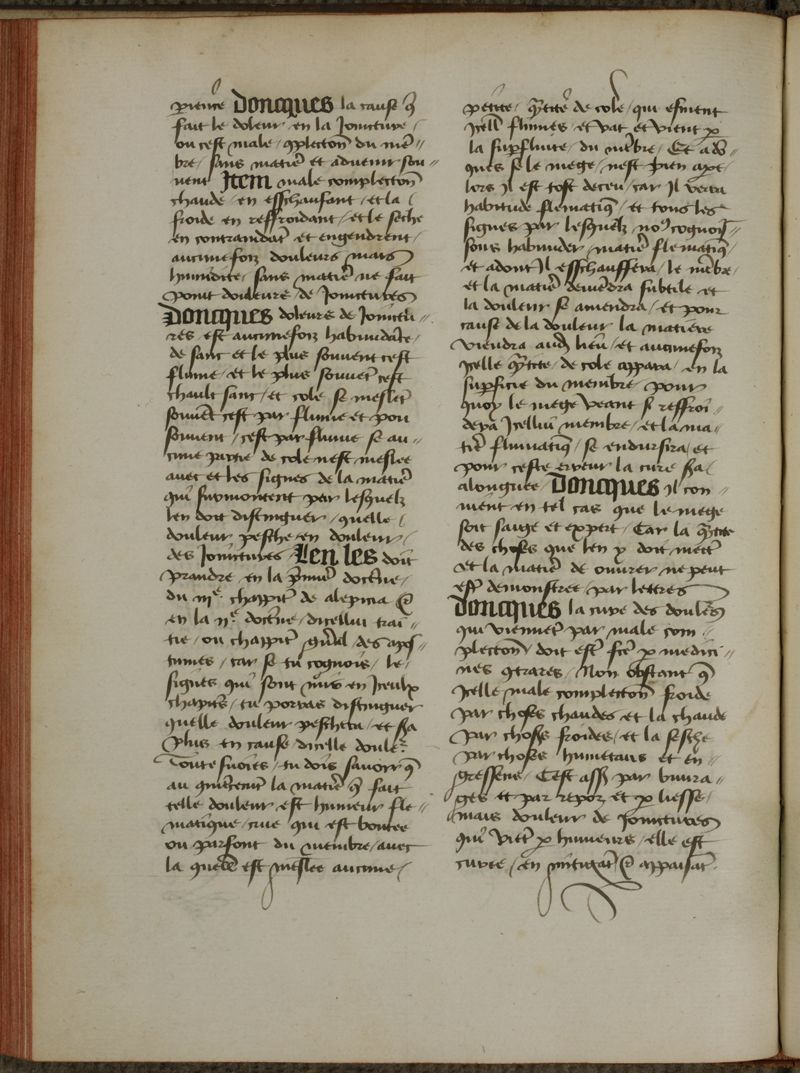 Doncques la cause q̃
fait le doleur en la Joincture /
ou cest male 9plection du mẽ //
bre / sans matie᷑ et advenir sou //
vent Item male complection
chaude / en eschaufant / et la /
froide en reffroidant / et le seche
en contraindat̃ et engendrent /
aucunefoiz douleurs mais
humidite / sans matie᷑ ne fait
point douleurs / de Joinctures
Doncques doleurs de Joinctu //
res est aucunefoiz habundãte /
de sanc et le plus souvent cest
flume / et le plus souvẽt cest
chault sanc / et cole se meslẽt
souvẽt cest par flume et pou
souvent / cest par flume se au //
cune de cole nest meslee
avec et les signes de la matie᷑
qui surmontent par lesq̃lz
len doit distinguer / quelle /
douleur pesche en douleur /
des Joinctures Len les doit
prandre / en la p̃miẽ doctᵉne /
du iiiᵉ chappit᷑ de alopicia
en la iiᵉ doctᵉne / dicellui trai //
tie / ou chappit᷑ des apos //
tumes / car se tu cognois / les
signes qui sont mis en Iceulx
chapit᷑s / tu porras distinguer
quelle douleur peschera / et sa
plus en cause dicelle doulẽ
Toute fuoies / tu dois savoir q̃
au la matie᷑ q̃ fait
telle douleur est humeur fle //
matique / crue qui est boutee
ou parfont du membre / avec
la quelle est meslee aucune /
petite / q̃tite᷑ de cole / qui esmeut
Icell᷑ flumes / et vat et vient p
la supfluite / du mẽbre / Et ad9 //
ques se le mege / nest bien apt /
lors Il est tost deceu / car Il verra
habitude flematiq̃ / et tous les
signes par lesquelz no9 cognois //
sons habunder matie᷑ flematiq̃ /
et adont Il eschauffera / le mẽbre /
et la matie᷑ devẽdra subtile et
la douleur se amendra / et pour
cause de la douleur la matiere
viendra aud lieu / et aucunefoiz
Icelle q̃tite / de cole appara / en la
supficie du membre pour
quoy le mege veant si reffroi //
dera Icellui membre / et la ma //
tie᷑ flumatiq̃ / se endursira / et
pour ceste erreur la cure sa /
alonguee / Doncques Il con //
vient en tel cas que le mege
soit saige et expert / Car la q̃tite
des choses que len y doit mect᷑
et la matie᷑ de ouvrer ne peut
est᷑ demonstree par lettres
Doncques la cure des doulẽs
qui viennẽt par male com //
plection doit est᷑ fcẽ p medici //
nes 9trares / Non obstant q̃
Icelle male complection froide
par choses chaudes et la chaude
par choses froides / et la seiche
par choses humectans et en //
gressene / Cest assᷓ par buura //
ges et par repoz et p liesse /
mais douleur de Joinctures
qui viẽt p humeurs / elle est
curee / en mitigãt appaisãt